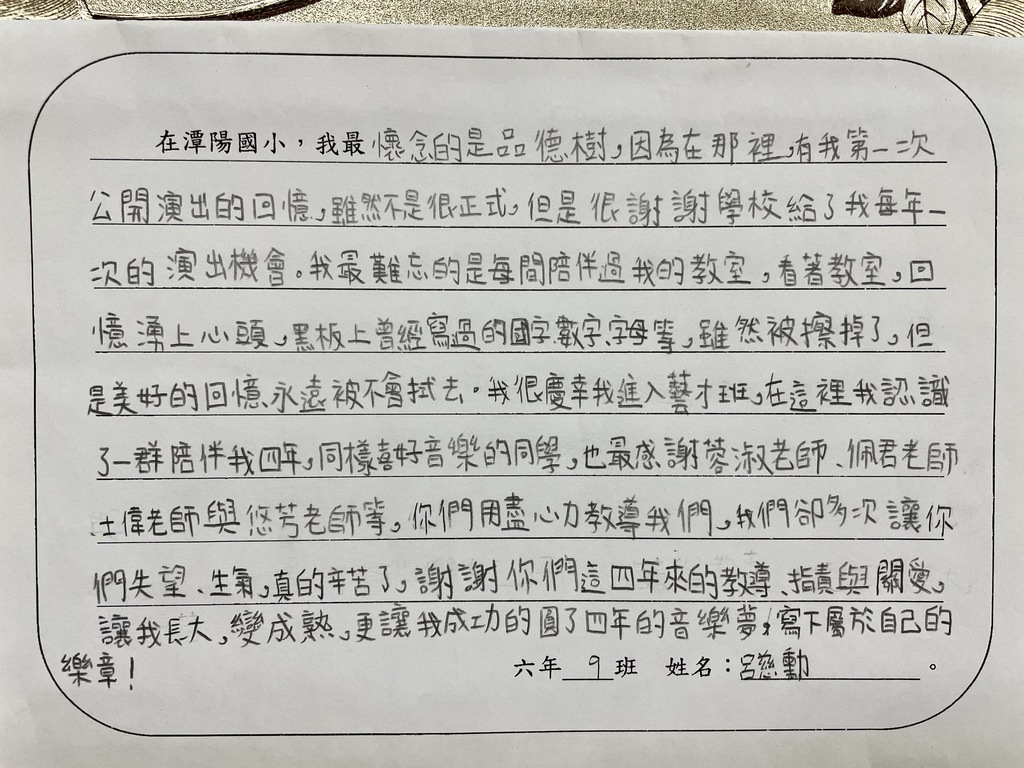 在潭陽國小，我最懷念的是品德樹，因為在那裡，有我第一次
公開演出的回憶，雖然不是很正式，但是很謝謝學校給了我每年一
次的演出機會。我最難忘的是每間陪伴過我的教室，看著教室，回
憶湧上心頭，黑板上曾經寫過的國字、數字、字母等，雖然被擦掉了，但
是美好的回憶永遠被不會拭去。我很慶幸我進入藝才班，在這裡我認識
了一群陪伴我四年，同樣喜好音樂的同學，也最感謝蓉淑老師、佩君老師
士偉老師與悠芳老師等，你們用盡心力教導我們，我們卻多次讓你
們失望、生氣，真的辛苦了，謝謝你們這四年來的教導、指責與關愛，
讓我長大，變成熟，更讓我成功的圓了四年的音樂夢，寫下屬於自己的
樂章！
六年9班 姓名：呂慈勳。